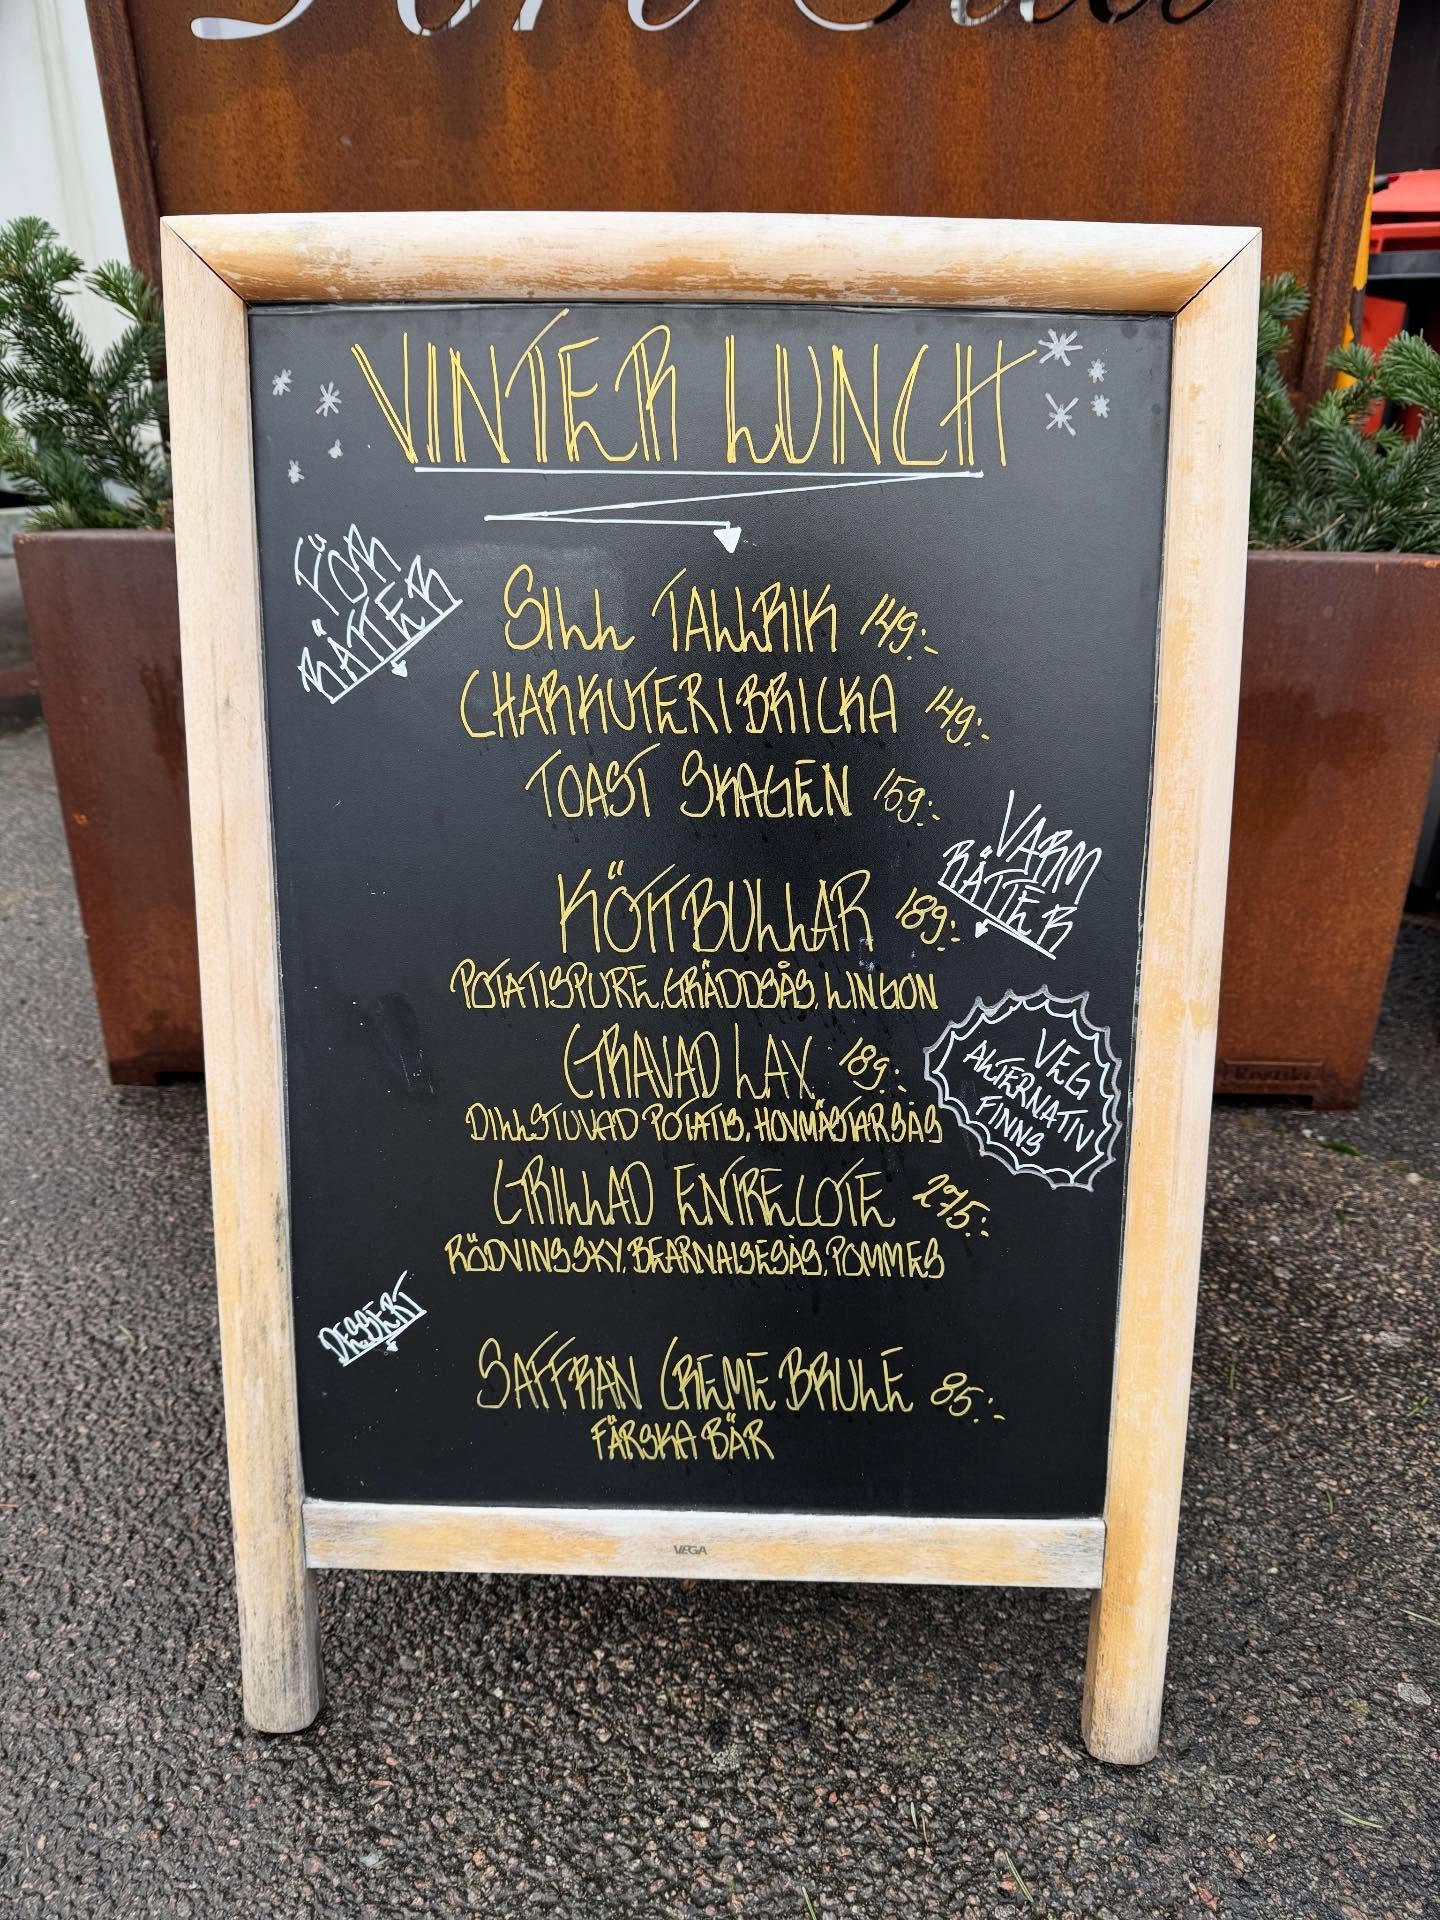 VINTER LUNCH
FÖR
RÄTTER
SILL TALLRIK 149:-
CHARKUTERIBRICKA 149:-
TOAST SKAGEN 159:-
VARM
RÄTTER
KÖTTBULLAR 189:-
POTATISPURE, GRÄDDSÅS, LINGON
GRAVAD LAX 189:-
DILLSTUVAD POTATIS, HOVMÄSTARSÅS
VEG
ALTERNATIV
FINNS
GRILLAD ENTRECOTE 275:-
RÖDVINSSKY, BEARNAISESÅS, POMMES
DESSERT
SAFFRAN CREME BRULE 85:-
FÄRSKA BÄR
VEGA